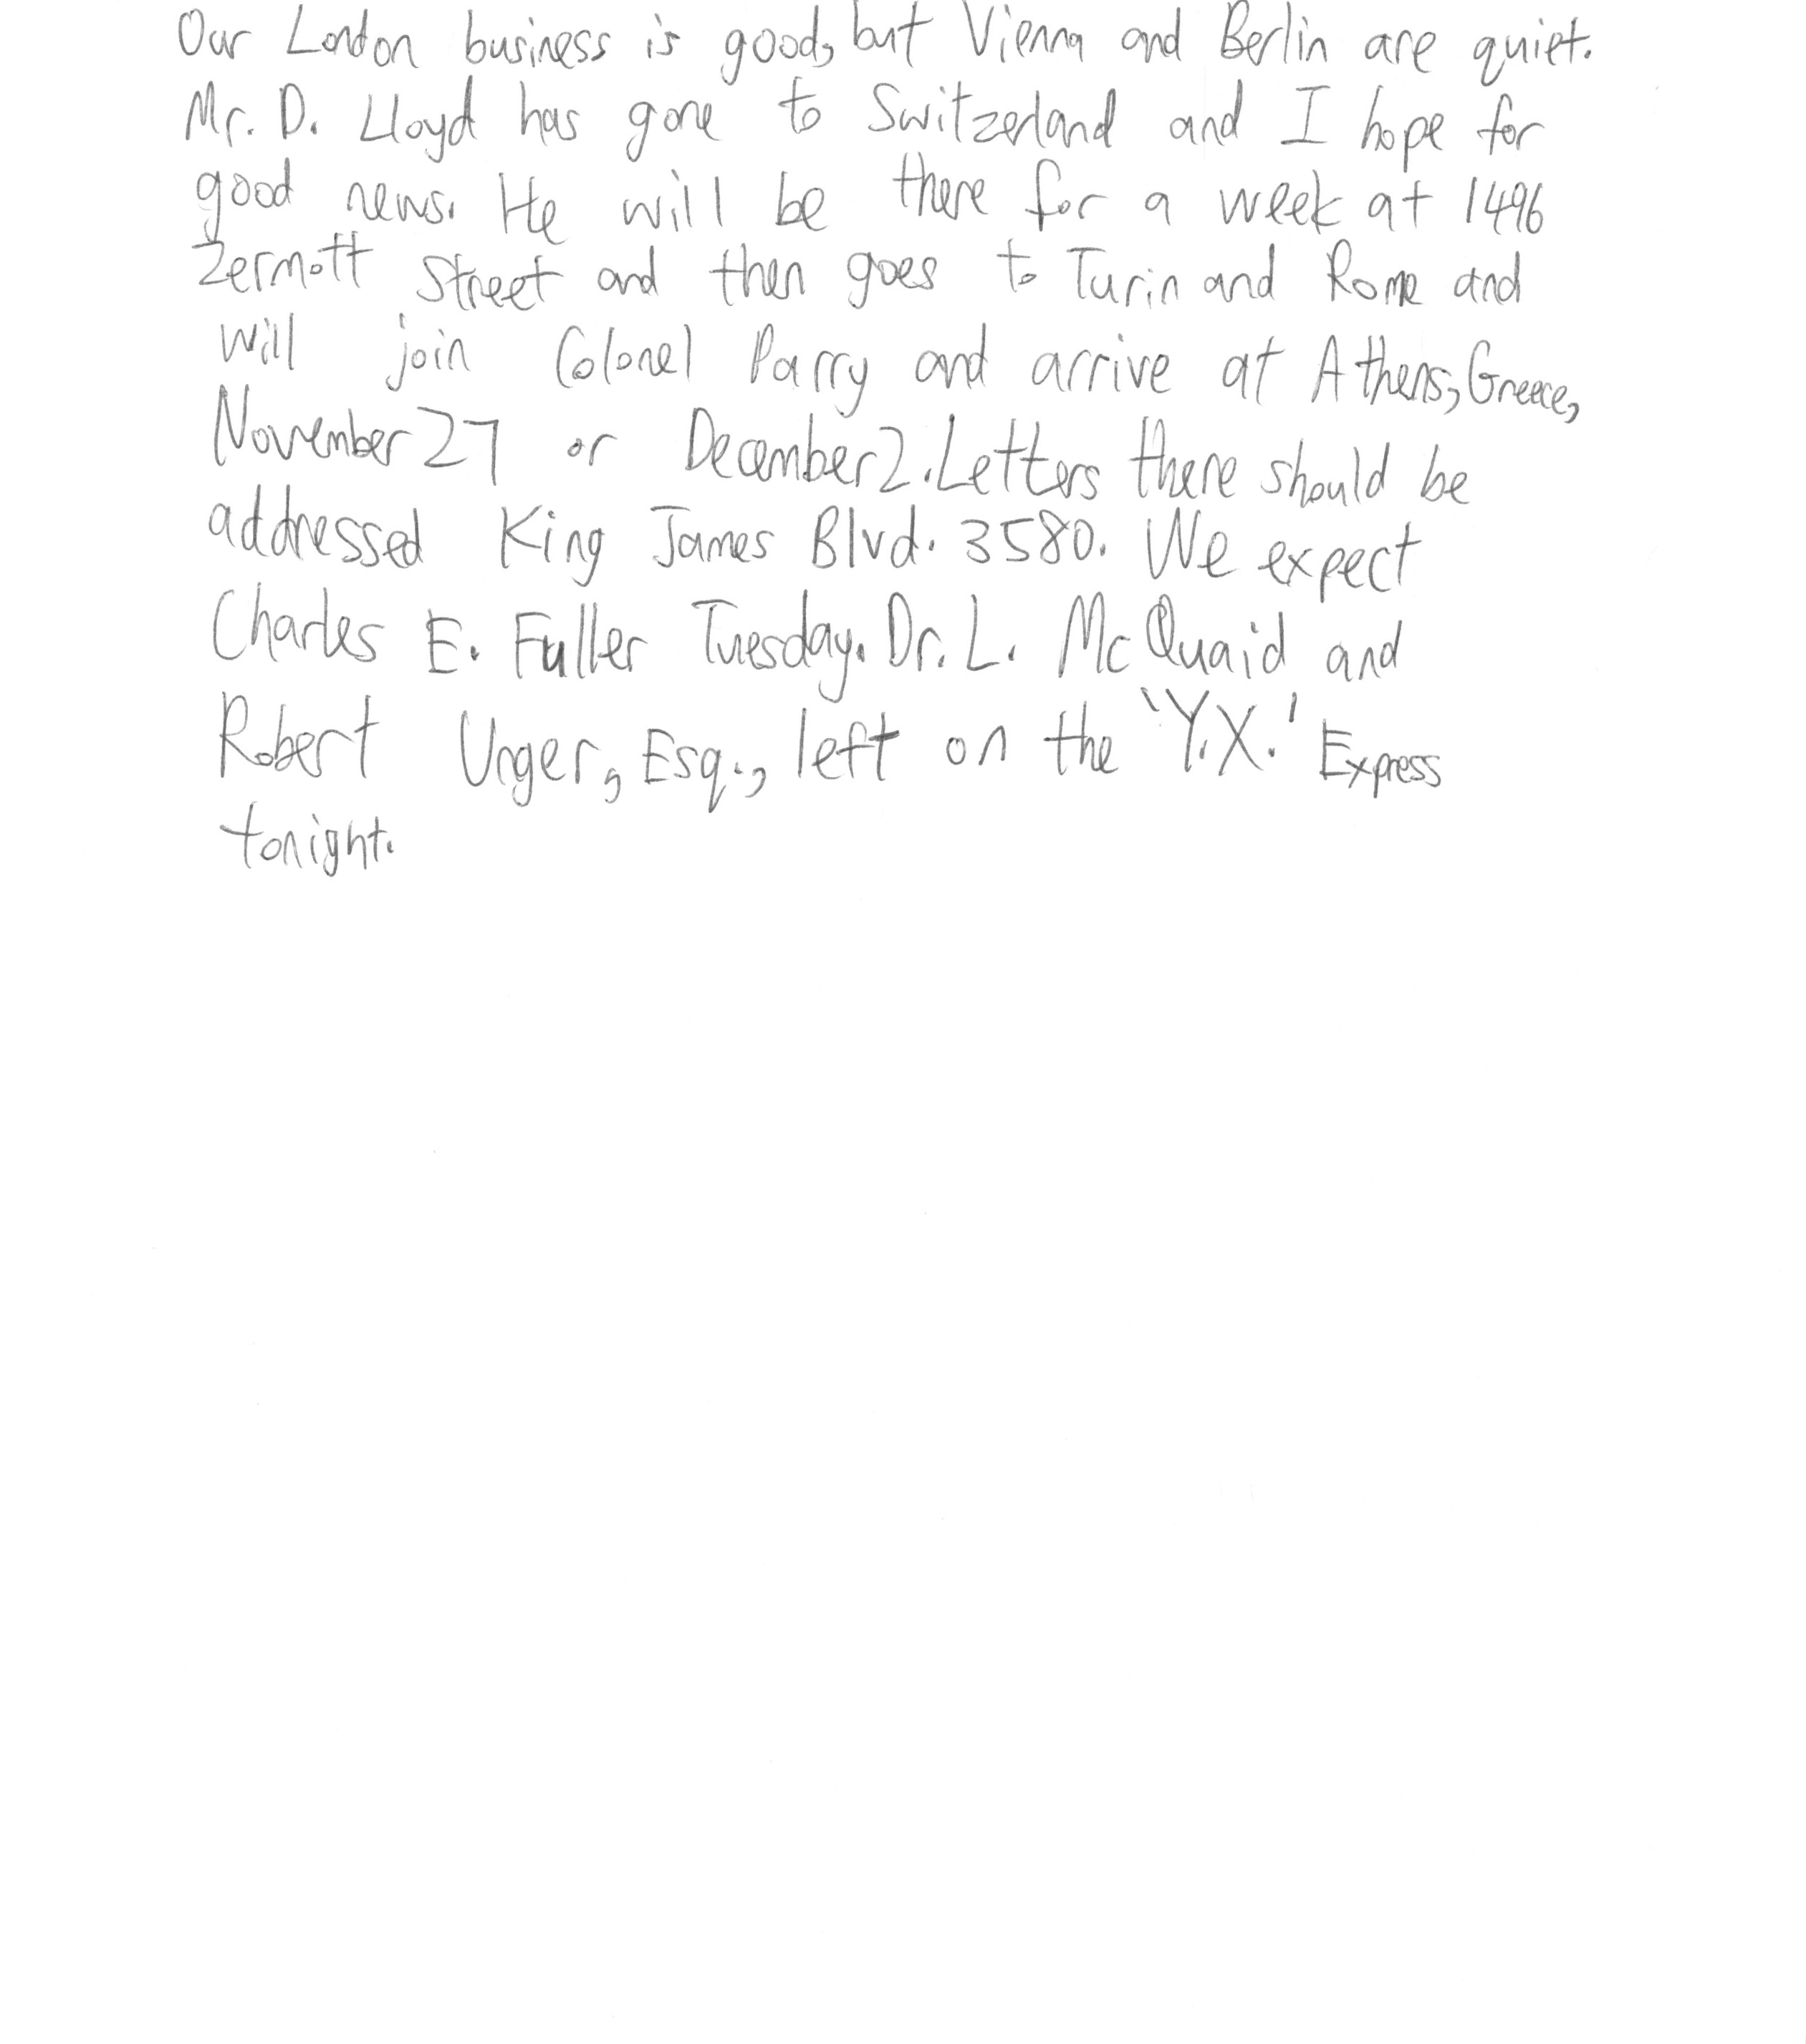 Our London business is good, but Vienna and Berlin are quiet.
Mr. D. Lloyd has gone to Switzerland and I hope for
good news. He will be there for a week at 1496
Zermott Street and then goes to Turin and Rome and
will join Colonel Parry and arrive at Athens, Greece,
November 27 or December 2. Letters there should be
addressed King James Blvd. 3580. We expect
Charles E. Fuller Tuesday. Dr. L. McQuaid and
Robert Unger, Esq., left on the 'Y.X.' Express
tonight.